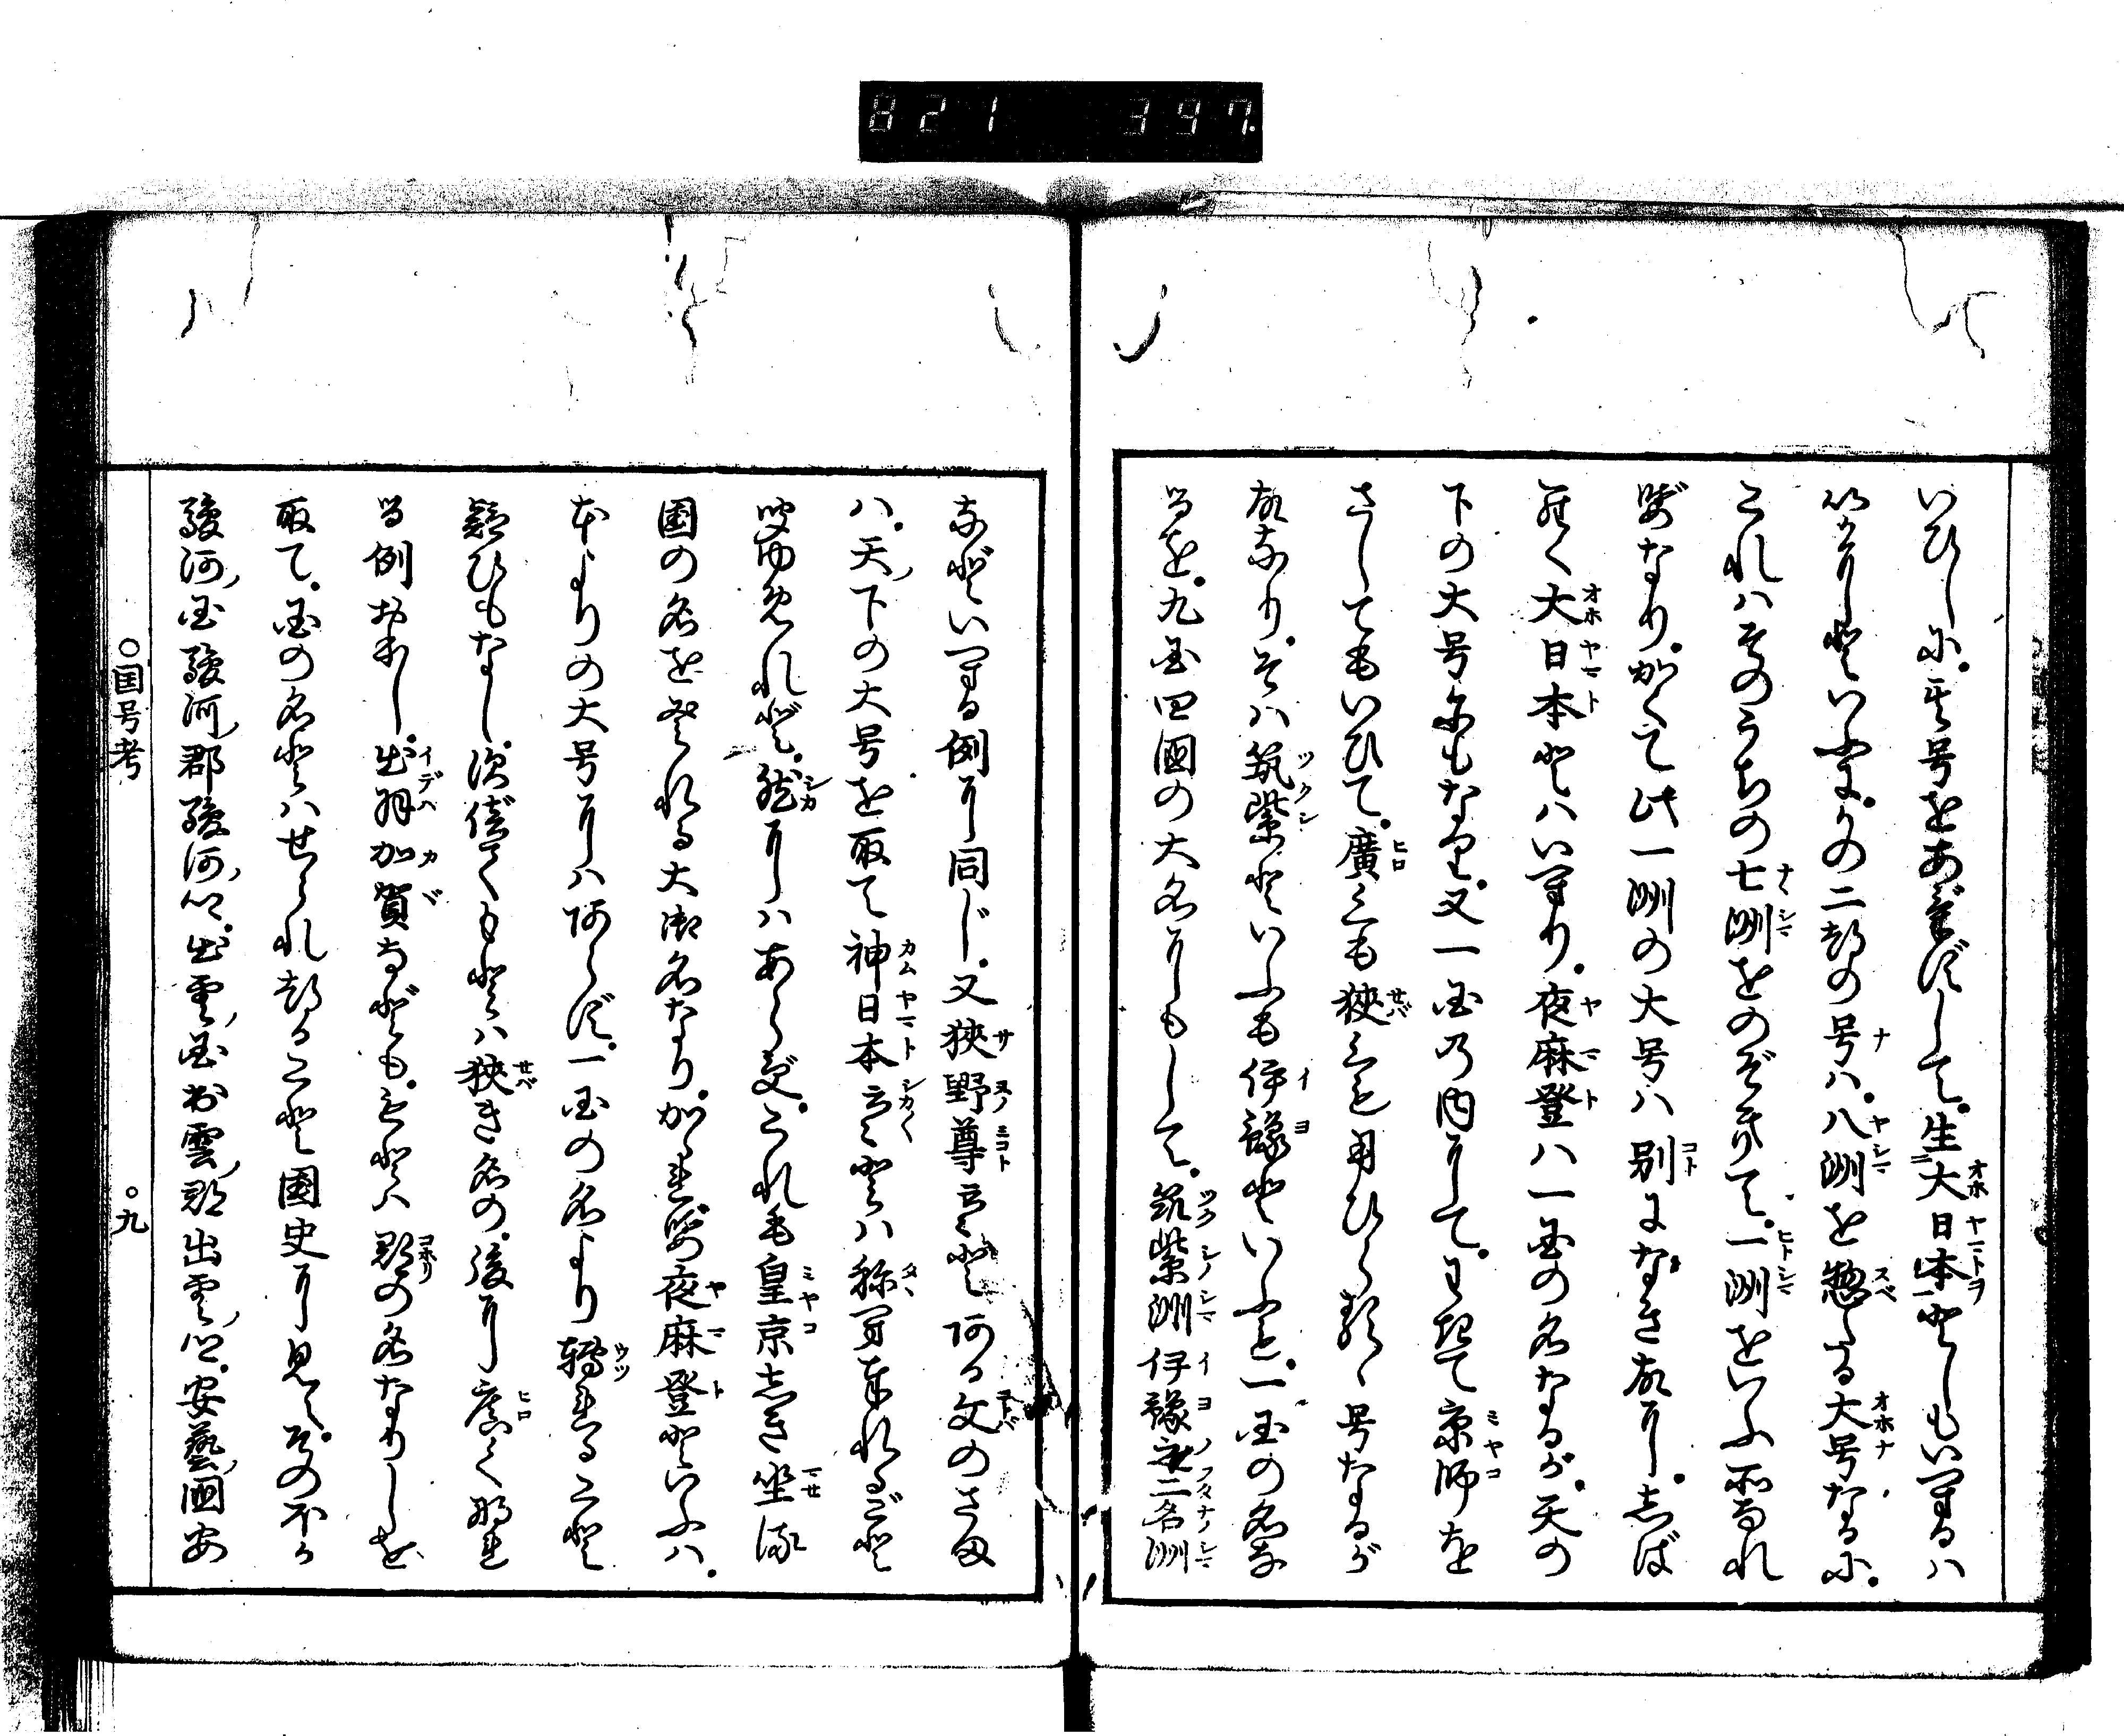 821 397.
いひしに。其号をあげずして。生大日本としもいへるは
いかにといふに。かの二つの号は。八洲を惣たる大号なるに。
これはそのうちの七洲をのぞきて。一洲をいふ所なれ
ばなり。かくて此一洲の大号は別になき故に。しば
らく大日本とはいへり。夜麻登は一国の名なるが。天の
下の大号にもなり。又一国の内にして。わきて京師を
さしてもいひて。廣くも狭くも用ひらるゝ号なるが
故なり。そは筑紫といふも伊豫といふも。一国の名な
るを。九国四國の大名にもして。筑紫洲伊豫之二名洲
などいへる例に同じ。又狭野尊云々とある文のさま
は。天下の大号を取て神日本云々とは称へ奉れるごと
聞ゆめれど。然にはあらず。これも皇京しき坐る
国の名をとれる大御名なり。かゝれば夜麻登といふは。
本よりの大号にはあらず。一国の名より轉れること
疑ひもなし。凡億てもとは狭き名の。後に廣くなれ
る例おほし。出羽加賀なども。もとは郡の名なりしを
取て。国の名とはせられつること国史に見え。その不か
駿河国駿河郡駿河心。出雲国出雲郡出雲心。安藝國安
○国号考
○九